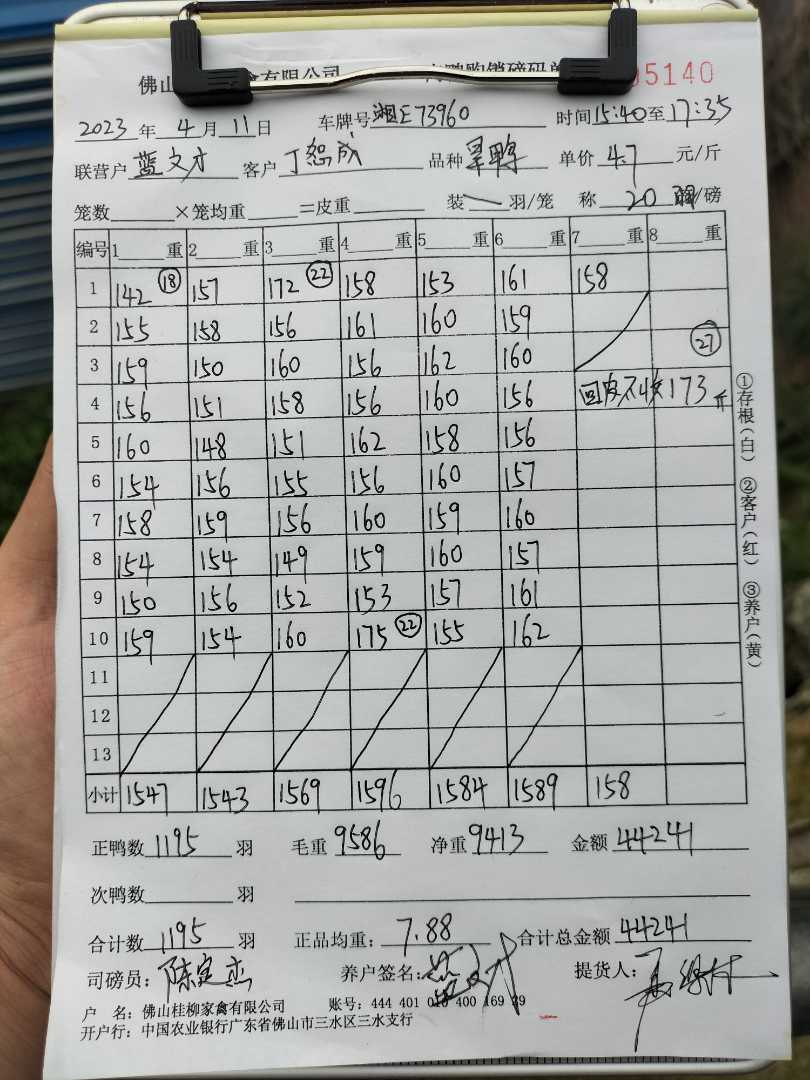 佛山 家禽有限公司 肉鸭购销磅码单 05140
2023 年 4 月 11 日 车牌号 湘E73960 时间 15:40 至 17:35
联营户 蓝文才 客户 丁 成 品种 旱鸭 单价 4.7 元/斤
笼数 ×笼均重 =皮重 装 羽/笼 称 20 /磅
编号 1 重 2 重 3 重 4 重 5 重 6 重 7 重 8 重
1 142 ⑱ 157 172 ㉒ 158 153 161 158
2 155 158 156 161 160 159
3 159 150 160 156 162 160 ㉗
4 156 151 158 156 160 156 回皮不收173斤
5 160 148 151 162 158 156
6 154 156 155 156 160 157
7 158 159 156 160 159 160
8 154 154 149 159 160 157
9 150 156 152 153 157 161
10 159 154 160 175 ㉒ 155 162
11
12
13
小计 1547 1543 1569 1596 1584 1589 158
①存根(白) ②客户(红) ③养户(黄)
正鸭数 1195 羽 毛重 9586 净重 9413 金额 44241
次鸭数 羽
合计数 1195 羽 正品均重: 7.88 合计总金额 44241
司磅员: 陈定杰 养户签名: 提货人:
户 名: 佛山桂柳家禽有限公司 账号: 444 401 010 400 169 29
开户行: 中国农业银行广东省佛山市三水区三水支行